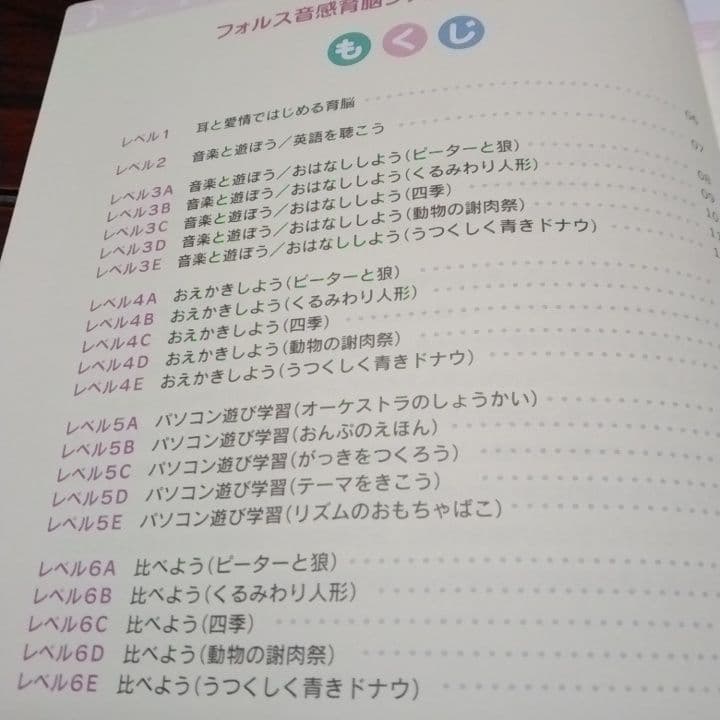 フォルス音感育脳
もくじ
レベル1 耳と愛情ではじめる育脳
06
レベル2 音楽と遊ぼう／英語を聴こう
07
レベル3A 音楽と遊ぼう／おはなししよう(ピーターと狼)
08
レベル3B 音楽と遊ぼう／おはなししよう(くるみわり人形)
09
レベル3C 音楽と遊ぼう／おはなししよう(四季)
レベル3D 音楽と遊ぼう／おはなししよう(動物の謝肉祭)
レベル3E 音楽と遊ぼう／おはなししよう(うつくしく青きドナウ)
レベル4A おえかきしよう(ピーターと狼)
レベル4B おえかきしよう(くるみわり人形)
レベル4C おえかきしよう(四季)
レベル4D おえかきしよう(動物の謝肉祭)
レベル4E おえかきしよう(うつくしく青きドナウ)
レベル5A パソコン遊び学習(オーケストラのしょうかい)
レベル5B パソコン遊び学習(おんぷのえほん)
レベル5C パソコン遊び学習(がっきをつくろう)
レベル5D パソコン遊び学習(テーマをきこう)
レベル5E パソコン遊び学習(リズムのおもちゃばこ)
レベル6A 比べよう(ピーターと狼)
レベル6B 比べよう(くるみわり人形)
レベル6C 比べよう(四季)
レベル6D 比べよう(動物の謝肉祭)
レベル6E 比べよう(うつくしく青きドナウ)